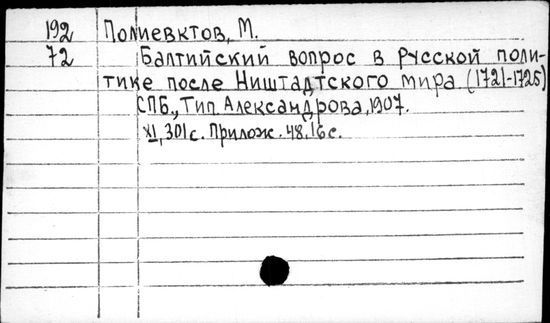 192 Полиевктов, М.
72 Балтийский вопрос в русской поли-
тике после Ништадтского мира (1721-1725)
СПБ., Тип. Александрова, 1907.
XI, 301 с. Прилож. 48, 16 с.